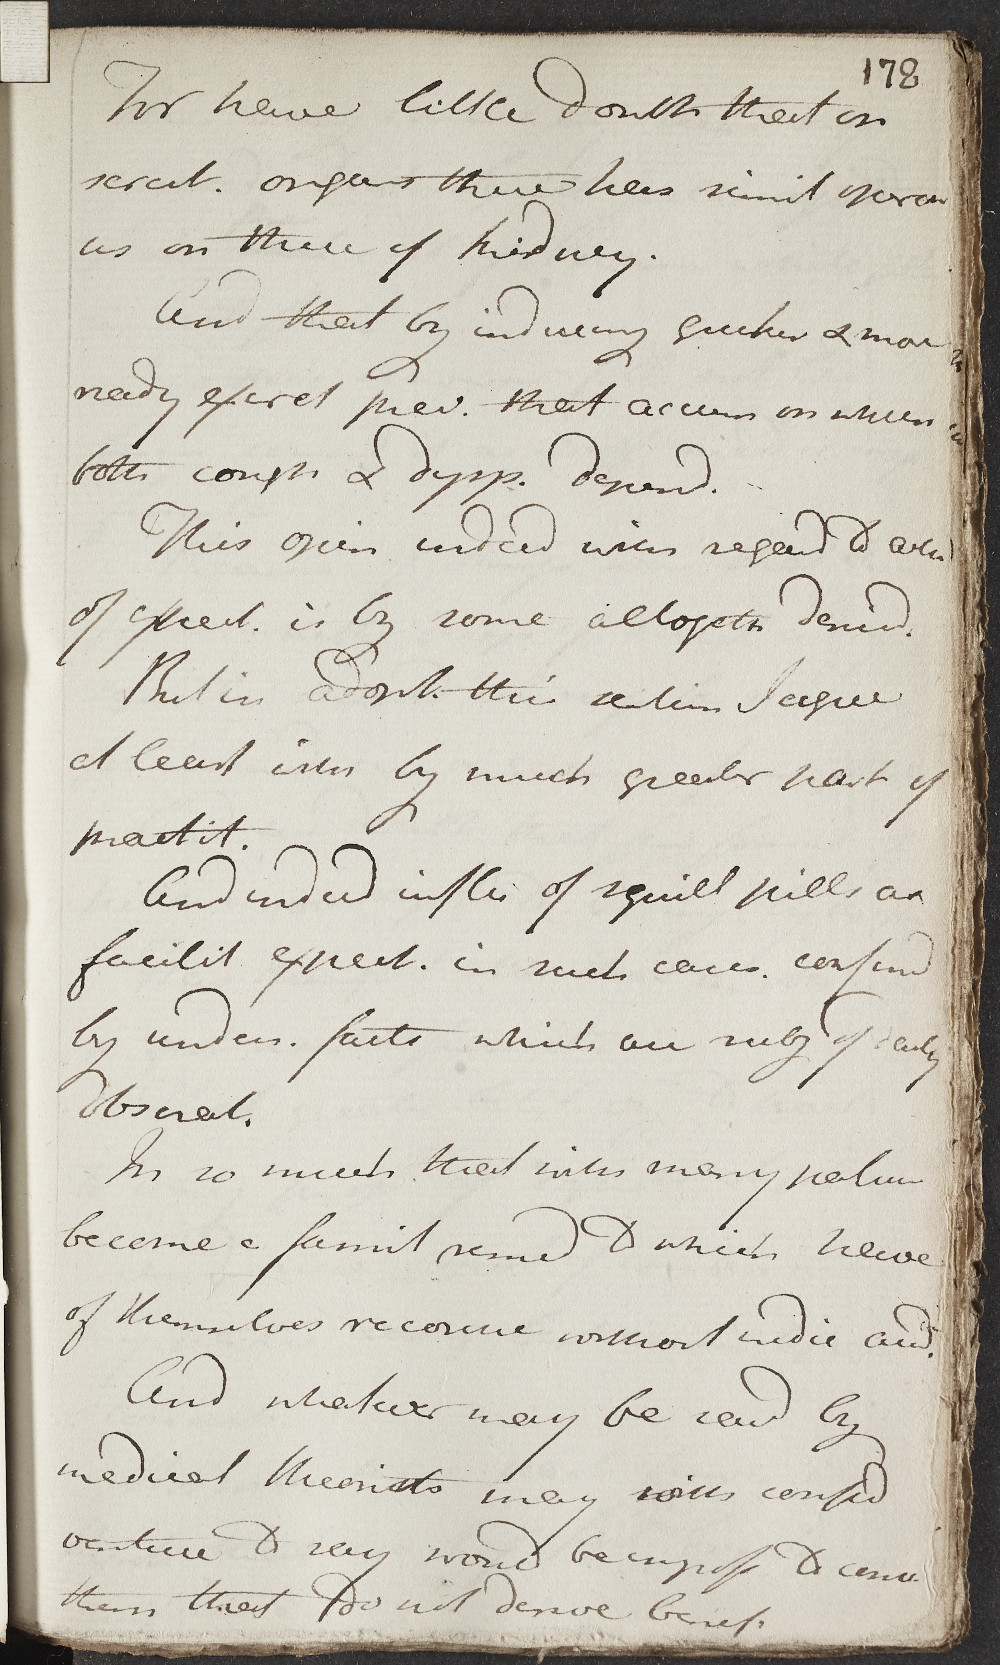 178
For have little doubt that on
secret. organs there has simil operan
as on those of kidney.
And that by inducing quicker & more
ready excret prev. that accum on which
both cough & dysp. depend.
This opin indeed with regard to
of expect. is by some altogeth denied.
But in adopt. this I agree
at least with by much greater part of
practit.
And indeed influ of squill pills as
facilit expect. in such cases. confirmd
by unden. facts which are subj of daily
observat.
In so much that with many
become a famil remed to which have
of themselves recourse without medic aid.
And whatever may be said by
medical theorists may with confid
venture to say would be imposs to
them that do not derive benef.